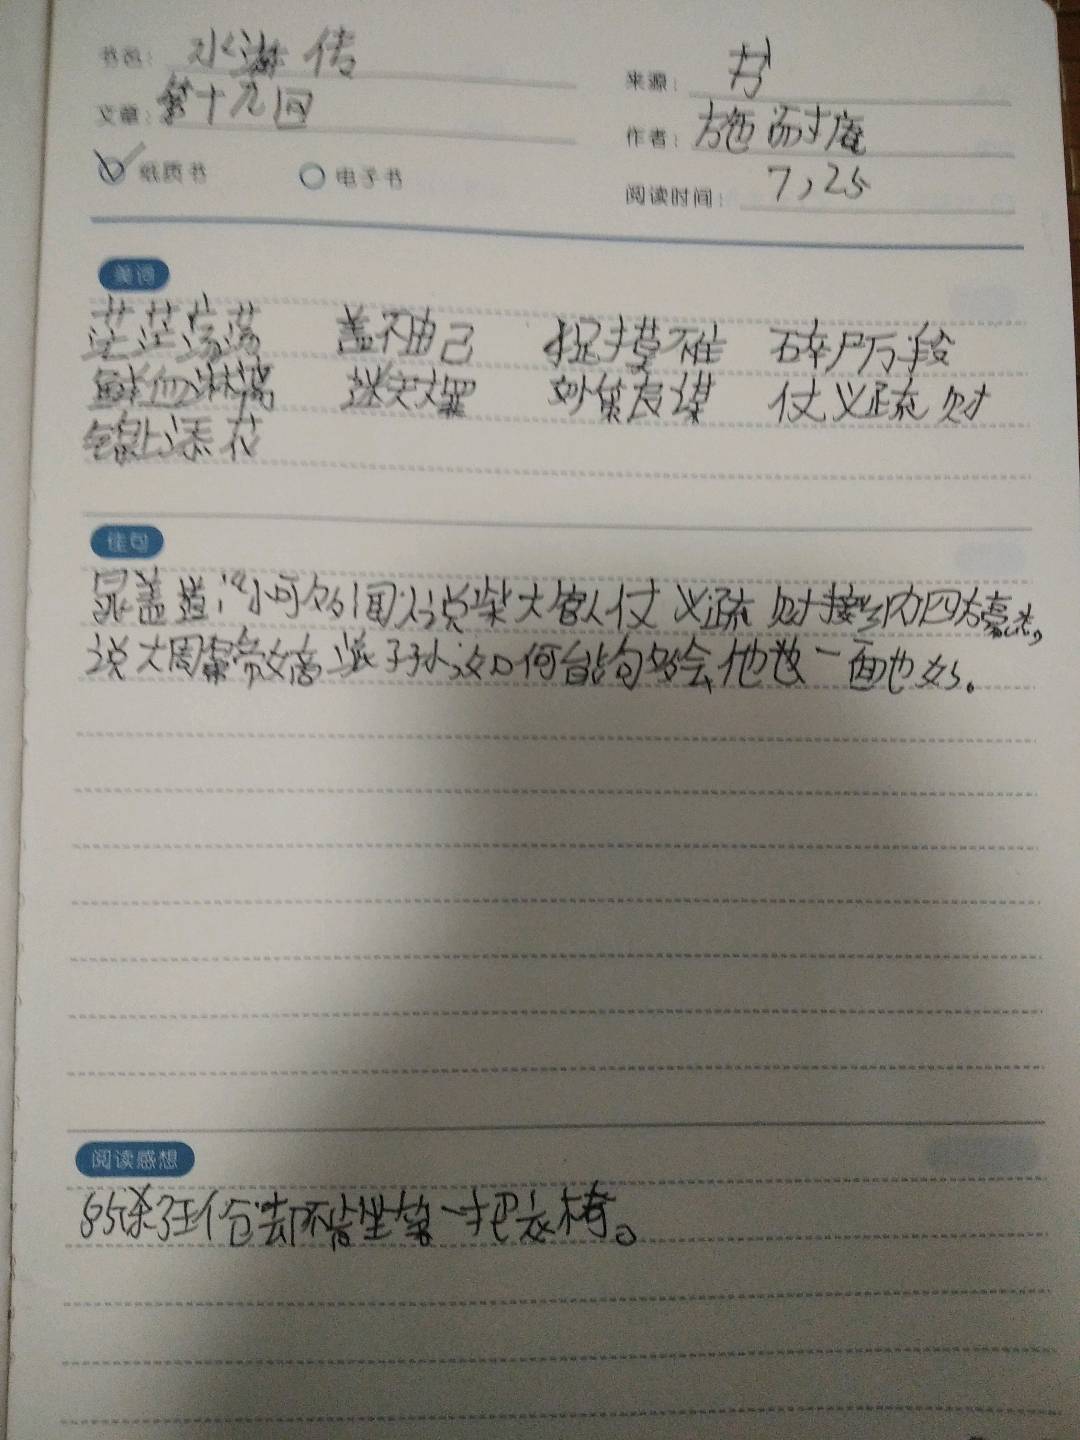 书名： 水浒传
来源： 书
文章： 第十九回
作者： 施耐庵
纸质书 电子书
阅读时间： 7,25
美词
茫茫荡荡 盖不由己 捉摸不住 碎尸万段
鲜血淋漓 弥天大罪 妙策良谋 仗义疏财
锦上添花
佳句
晁盖道：“小可多闻人说柴大官人仗义疏财接纳四方豪杰，
说大周皇帝嫡派子孙 如何能句够会他敬一面也好。
阅读感想
杀了王伦却不肯坐第一把交椅。